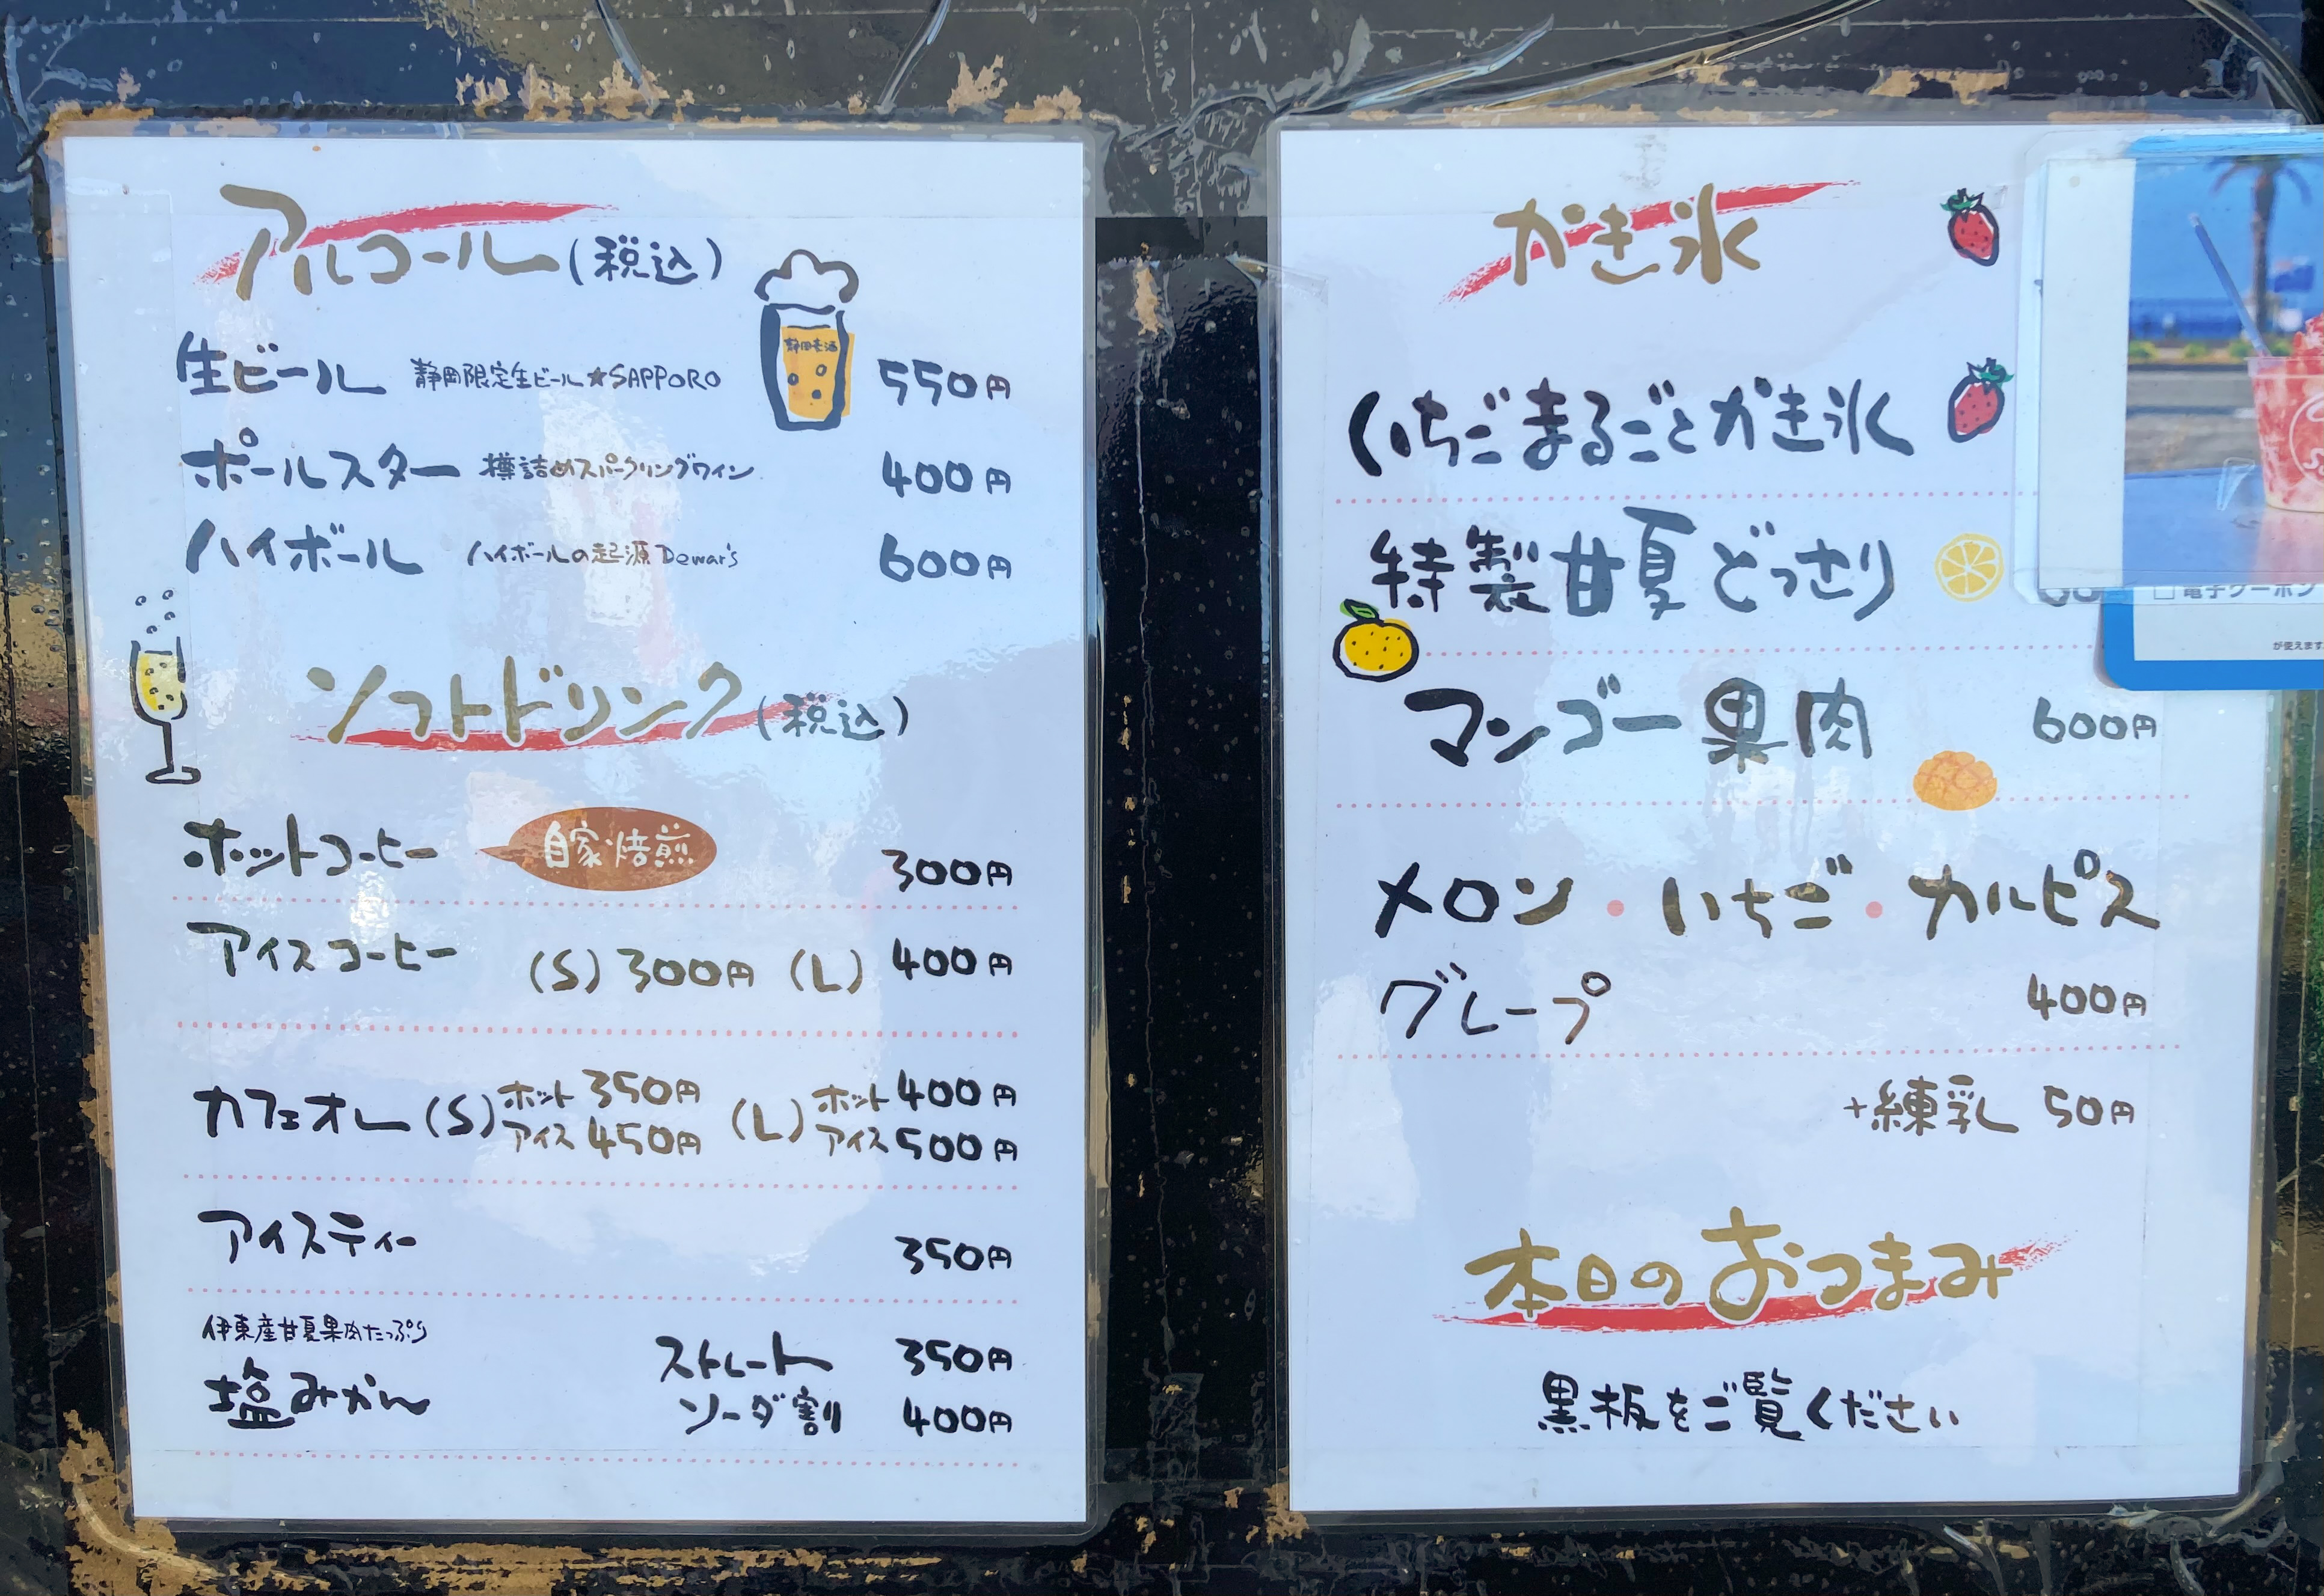 アルコール(税込)
生ビール 静岡限定生ビール★SAPPORO 550円
静岡麦酒
ポールスター 樽詰めスパークリングワイン 400円
ハイボール ハイボールの起源 Dewar's 600円
ソフトドリンク(税込)
ホットコーヒー 自家焙煎 300円
アイスコーヒー (S) 300円 (L) 400円
カフェオレ (S) ホット 350円 (L) ホット 400円
アイス 450円 アイス 500円
アイスティー 350円
伊東産甘夏果肉たっぷり
塩みかん ストレート 350円
ソーダ割 400円
かき氷
いちごまるごとかき氷
特製甘夏どっさり
マンゴー果肉 600円
メロン・いちご・カルピス
グレープ 400円
+練乳 50円
本日のおつまみ
黒板をご覧ください
電子クーポン
が使えます